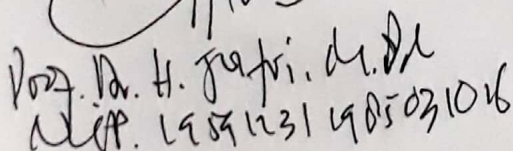 Prof. Dr. H. Jufri, M.Pd
NIP. 19591231 198503 1016